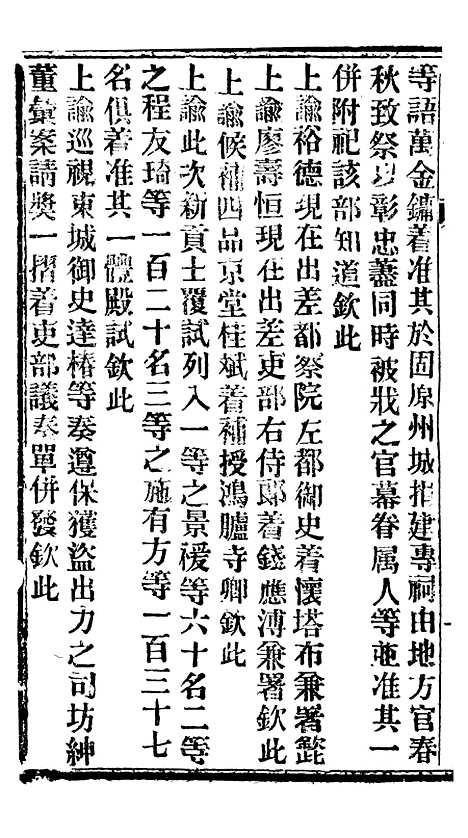 等語萬金鏞着准其於固原州城捐建專祠由地方官春
秋致祭以彰忠藎同時被戕之官幕眷属人等並准其一
併附祀該部知道欽此
上諭裕德現在出差都察院左都御史着懷塔布兼署欽此
上諭廖壽恒現在出差吏部右侍郎着錢應溥兼署欽此
上諭候補四品京堂桂斌着補授鴻臚寺卿欽此
上諭此次新貢士覆試列入一等之景禐等六十名二等
之程友琦等一百二十名三等之施有方等一百三十七
名俱着准其一體殿試欽此
上諭巡視東城御史達椿等奏遵保獲盜出力之司坊紳
董彙案請獎一摺着吏部議奏單併發欽此